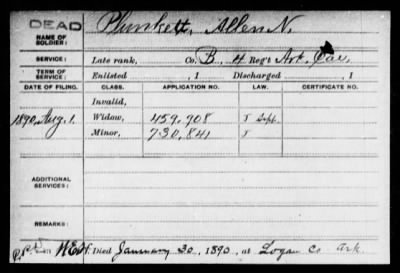 DEAD
NAME OF SOLDIER: Plunkett, Allen N.
SERVICE: Late rank, Co. B, 4 Reg't Ark. Cav.
TERM OF SERVICE: Enlisted , 1 Discharged , 1
DATE OF FILING. CLASS. APPLICATION NO. LAW. CERTIFICATE NO.
Invalid,
1890, Aug. 1. Widow, 459,908
Minor, 730,841
ADDITIONAL SERVICES:
REMARKS:
Died January 30, 1890, at Logan Co Ark.